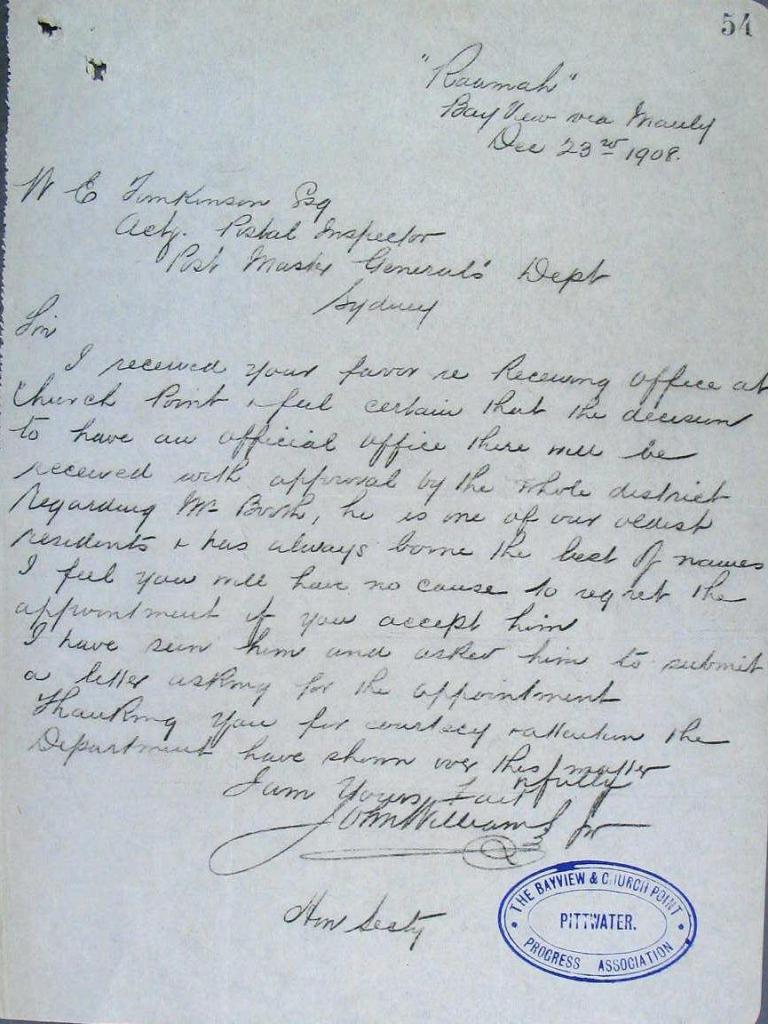 54
"Roumah"
Bay View via Manly
Dec 23rd 1908.
W E Tomkinson Esq
Actg. Postal Inspector
Post Mastr Generals' Dept
Sydney
Sir
I received your favor re Receiving office at
Church Point & feel certain that the decision
to have an official office there will be
received with approval by the whole district
Regarding Mr Booth, he is one of our oldest
residents & has always borne the best of names
I feel you will have no cause to regret the
appointment if you accept him
I have seen him and asked him to submit
a letter asking for the appointment
Thanking you for courtesy & attention the
Department have shown over this matter
I am Yours Faithfully
John Williams Jr
Hon Secty
THE BAYVIEW & CHURCH POINT
PITTWATER.
PROGRESS ASSOCIATION